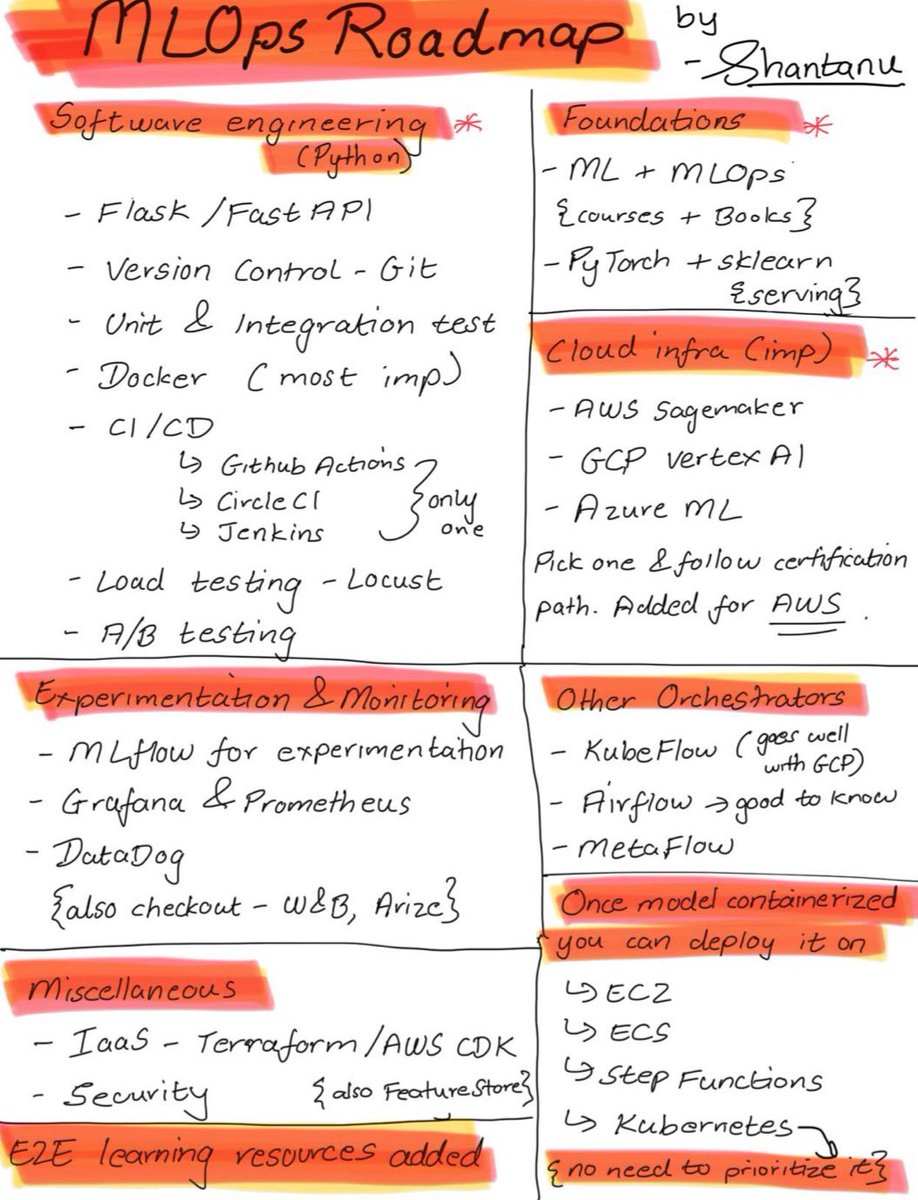 MLOps Roadmap
by
- Shantanu
Software engineering *
(Python)
- Flask / FastAPI
- Version Control - Git
- Unit & Integration test
- Docker (most imp)
- CI/CD
↳ Github Actions
↳ CircleCI
↳ Jenkins
} only
one
- Load testing - Locust
- A/B testing
Foundations *
- ML + MLOps
{courses + Books}
- PyTorch + sklearn
{serving}
Cloud infra (imp) *
- AWS Sagemaker
- GCP vertex AI
- Azure ML
Pick one & follow certification
path. Added for AWS.
Experimentation & Monitoring
- MLflow for experimentation
- Grafana & Prometheus
- DataDog
{also checkout - W&B, Arize}
Other Orchestrators
- KubeFlow (goes well
with GCP)
- Airflow → good to know
- MetaFlow
Miscellaneous
- IaaS - Terraform/AWS CDK
- Security {also FeatureStore}
E2E learning resources added
Once model containerized
you can deploy it on
↳ EC2
↳ ECS
↳ Step Functions
↳ Kubernetes
{no need to prioritize it}